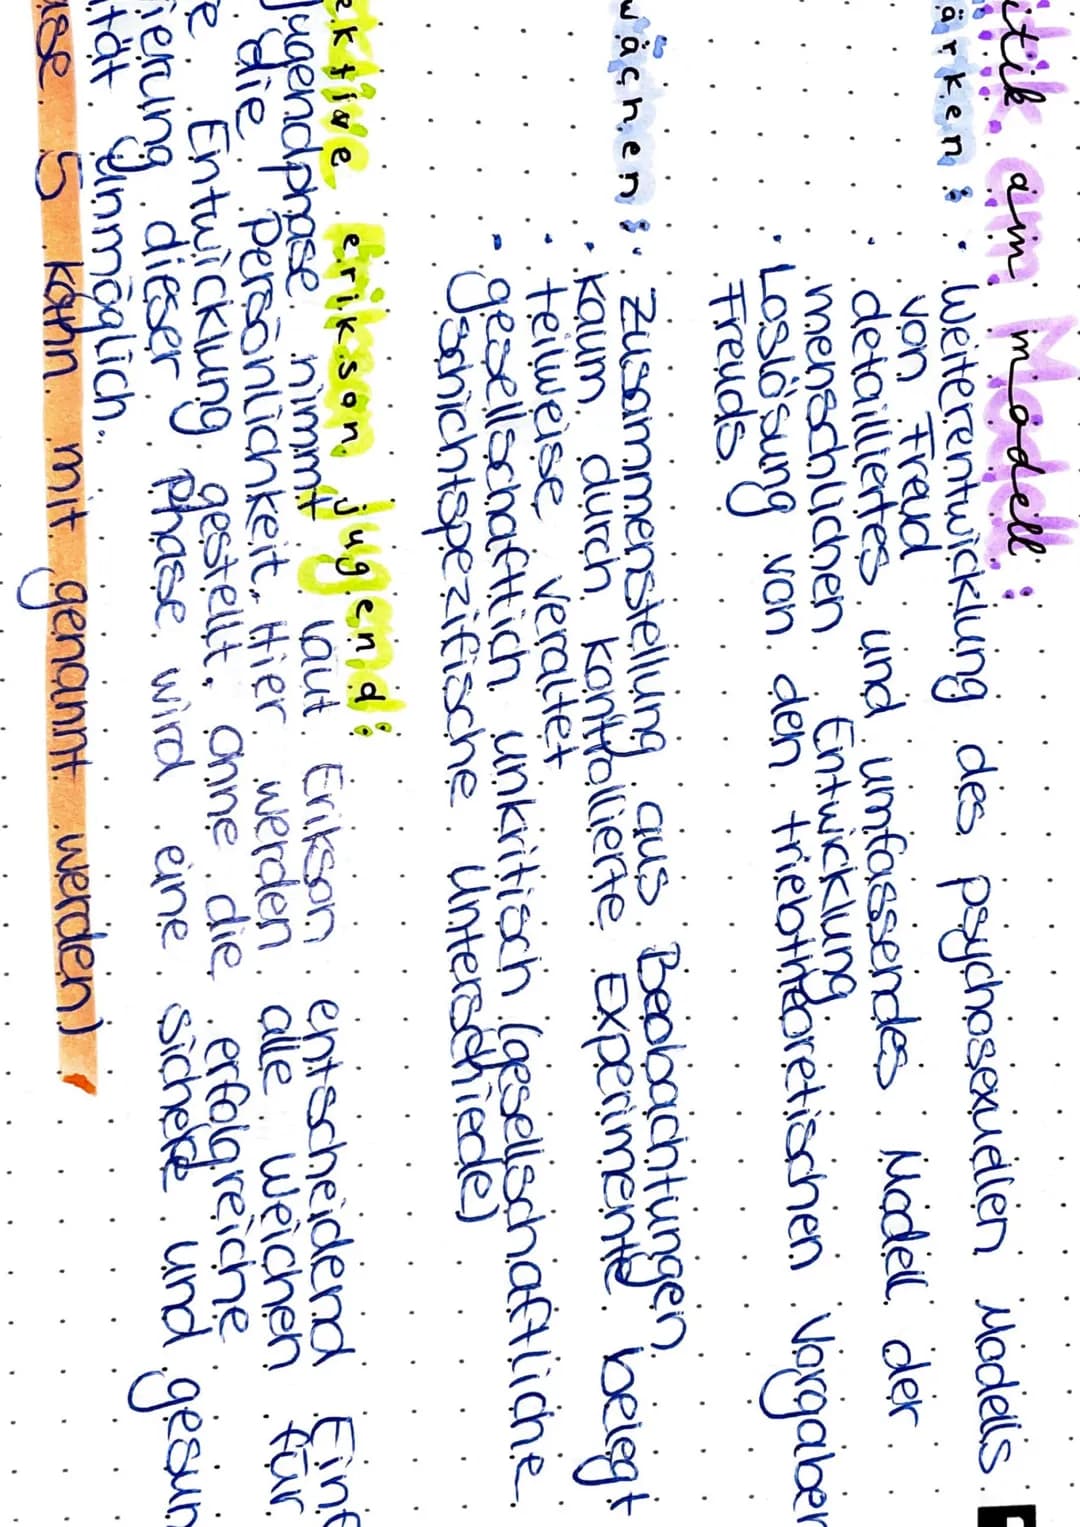 itik am Modell:
ärken:
· Weiterentwicklung des psychosexuellen Modells
von Freud
· detailliertes und umfassendes Modell der
menschlichen Entwicklung
· Loslösung von den triebtheoretischen Vorgaben
Freuds
wächen:
· Zusammenstellung aus Beobachtungen
kaum durch kontrollierte Experimente belegt
· teilweise veraltet
· gesellschaftlich unkritisch (gesellschaftliche
geschichtspezifische Unterschiede)
ektive erikson jugend:
Jugendphase nimmt laut Erikson entscheidend Einf
die Persönlichkeit. Hier werden alle Weichen für
e Entwicklung gestellt. Ohne die erfolgreiche
ierung dieser Phase wird eine sichere und gesun
tität unmöglich.
ase 5 kann mit genannt werden)